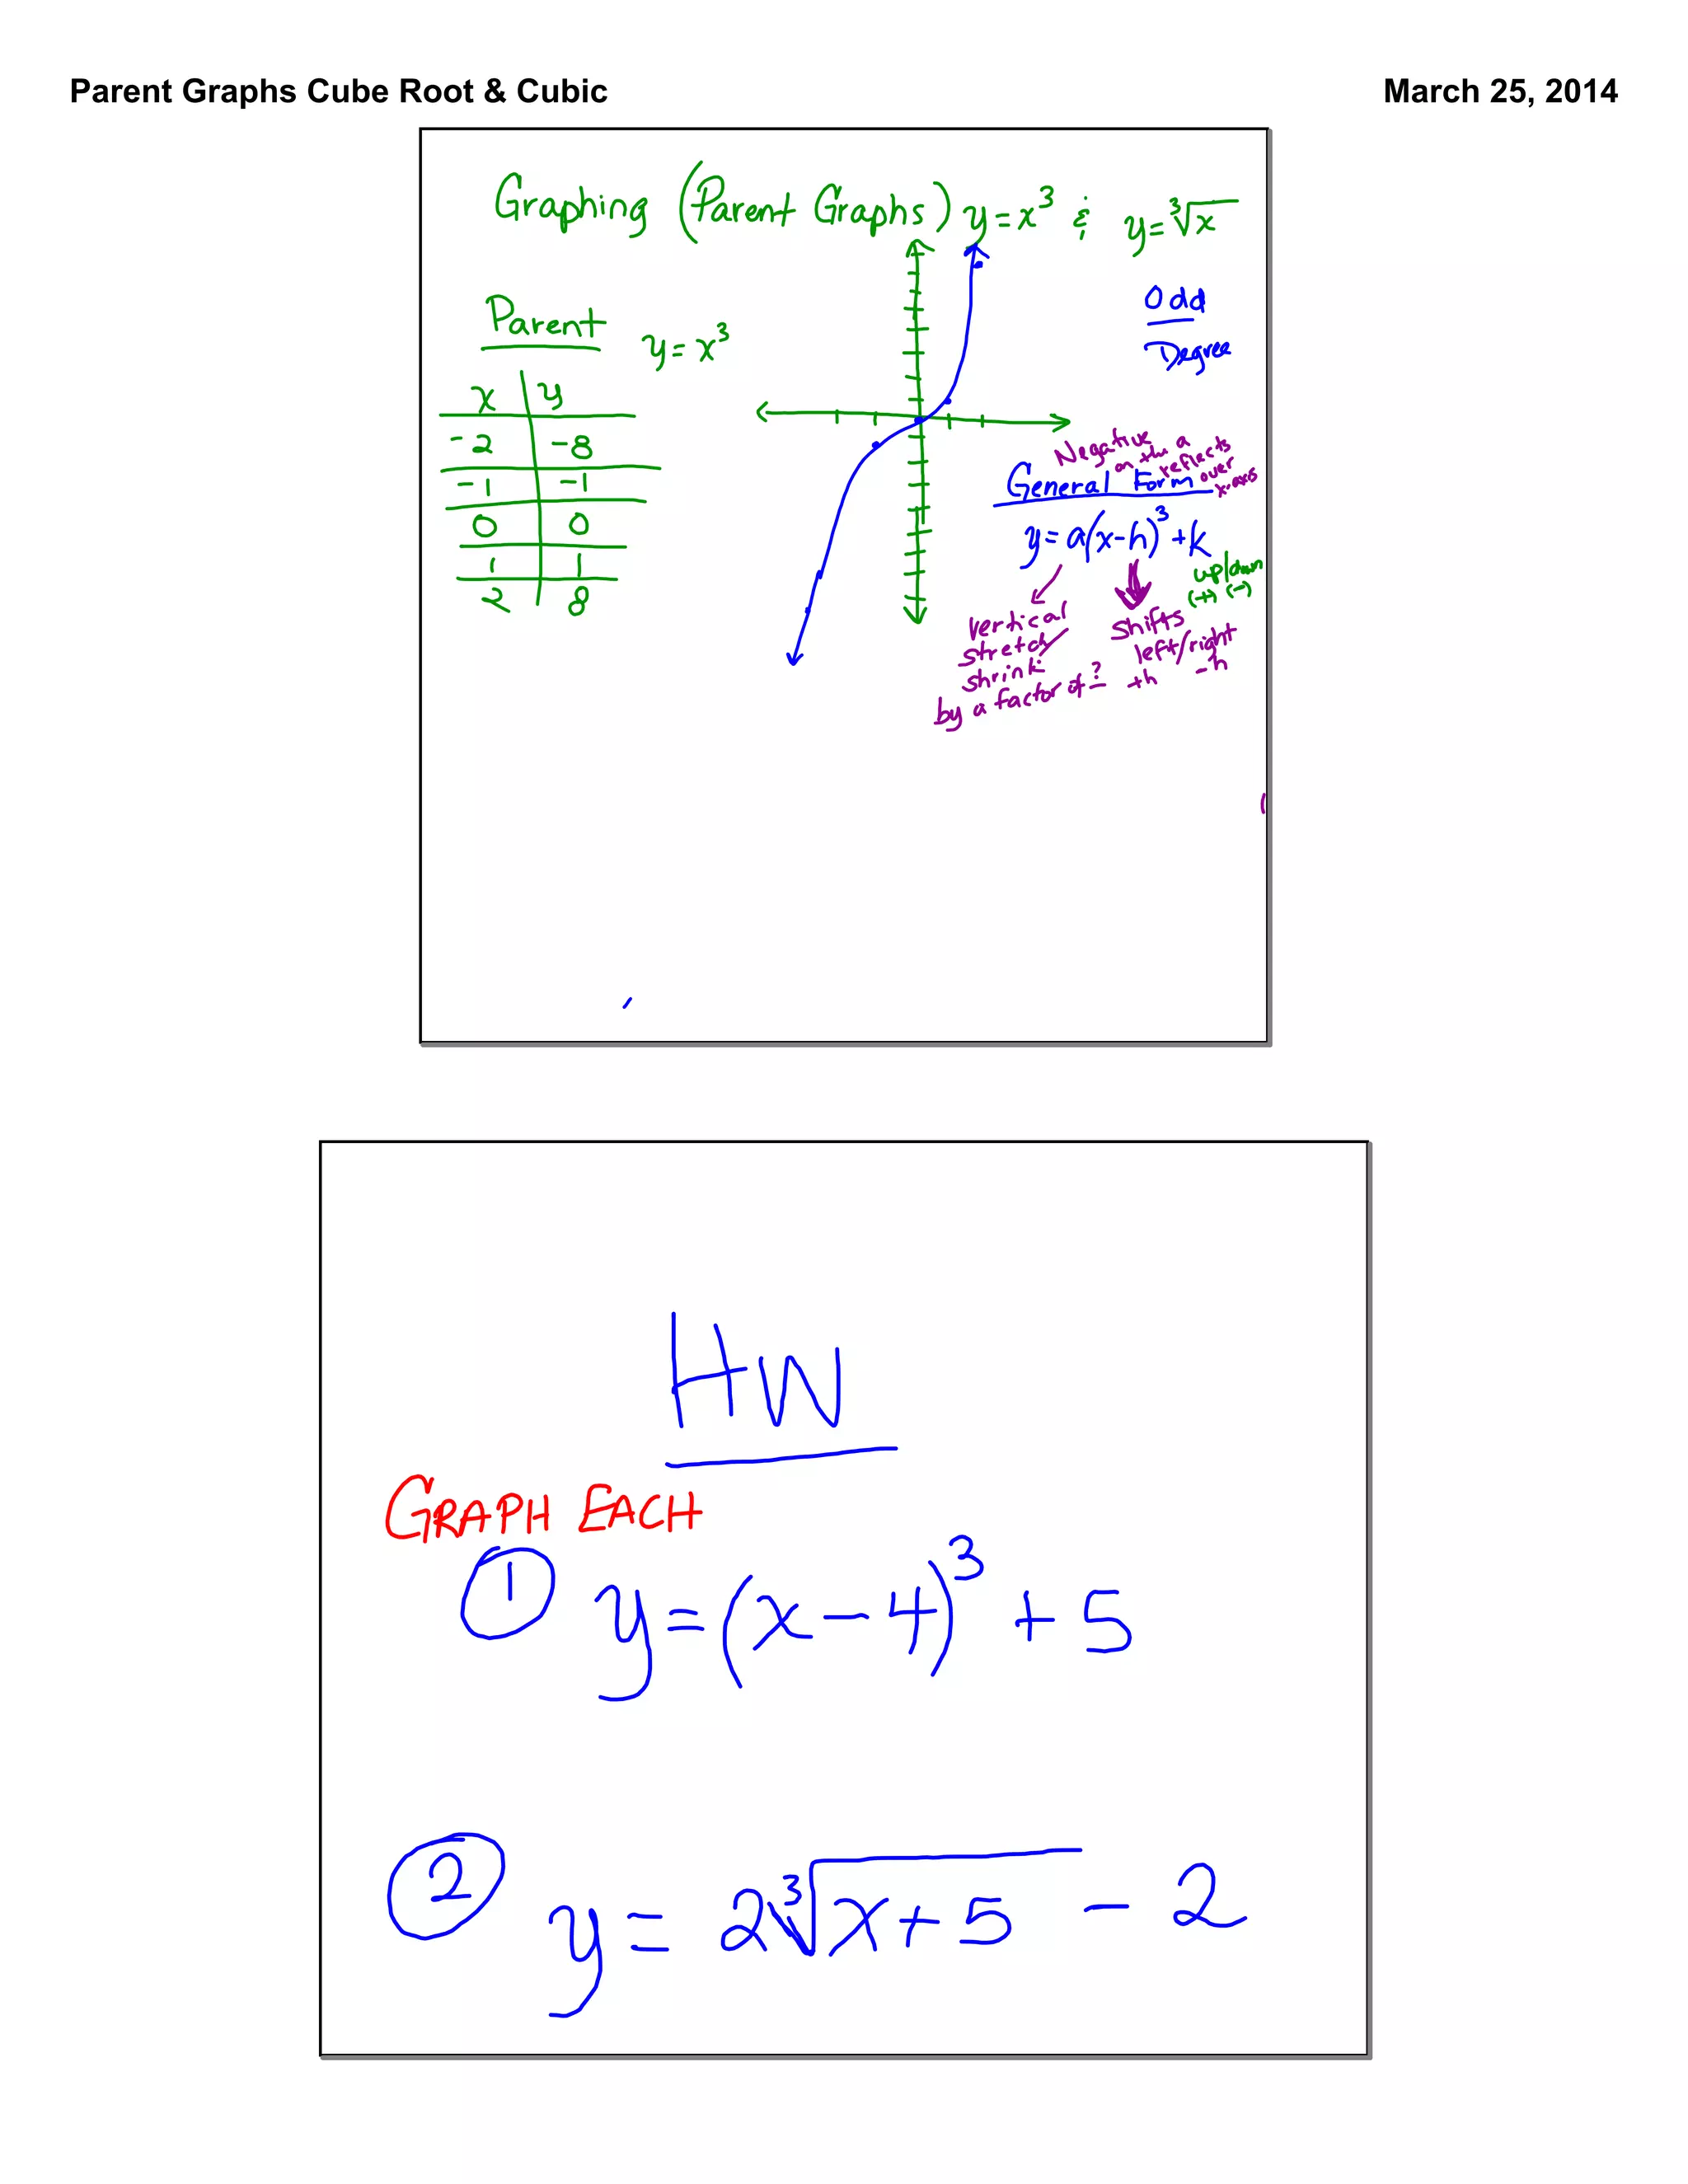 Parent Graphs Cube Root & Cubic March 25, 2014
Graphing (Parent Graphs) y=x³ & y=∛x
Odd
Degree
Parent y=x³
x y
-2 -8
-1 -1
0 0
1 1
2 8
Negative a
on the reflects
over
x-axis
General Form
y=a(x-h)³+k
up/down
(+) (-)
vertical
stretch/
shrink
by a factor of ?
shifts
left/right
+h -h
HW
GRAPH EACH
① y=(x-4)³+5
② y=2∛x+5 - 2